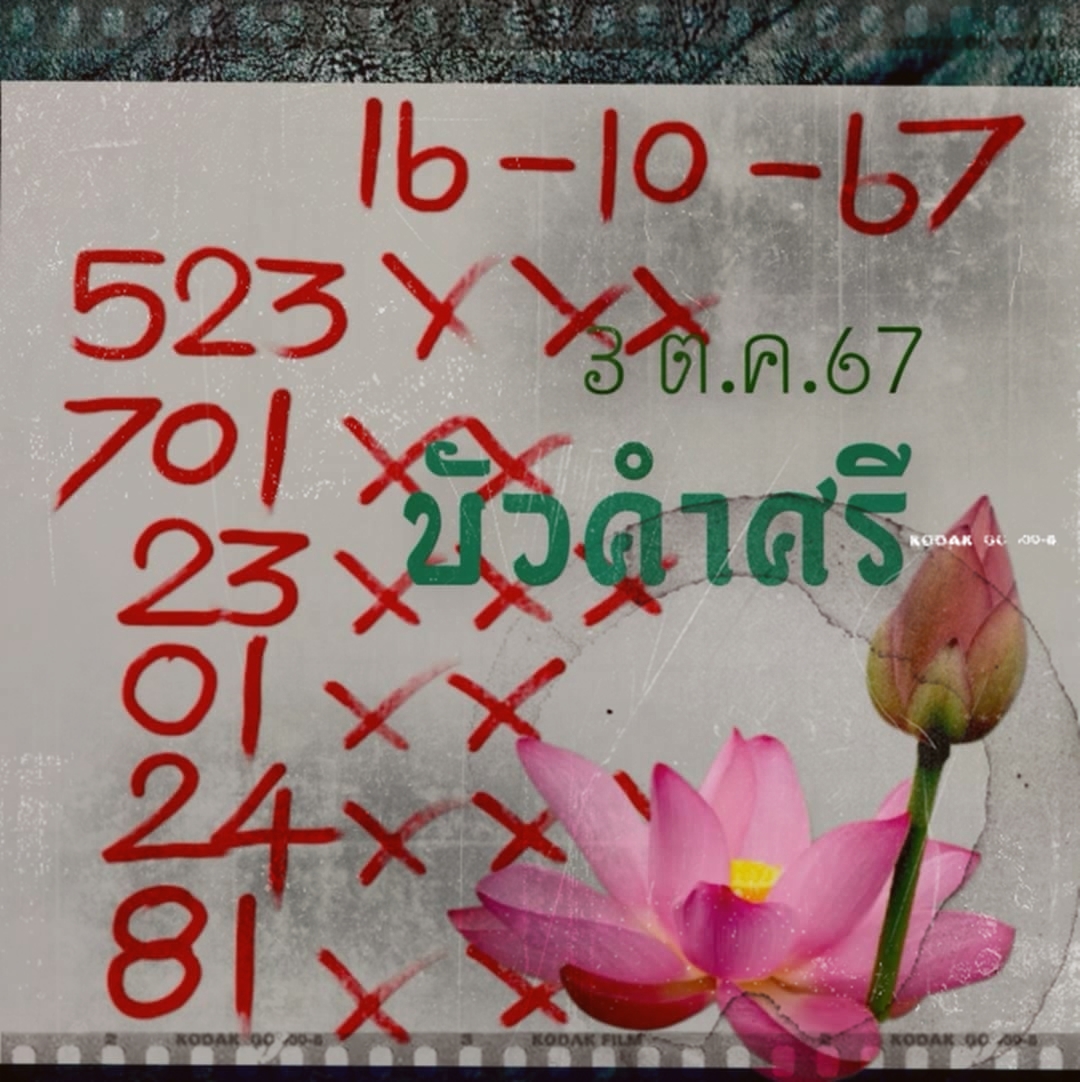 16-10-67
523 XXX
3 ต.ค.67
701 XX
บัวคำศรี
KODAK GC
23 XXX
01 XX
24 XX
81 XX
2 KODAK GC 3 KODAK FILM 2 KODAK GC